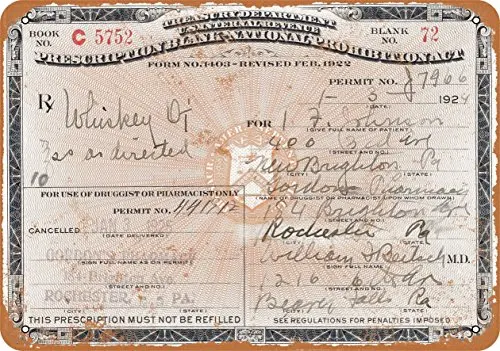 TREASURY DEPARTMENT
U.S. INTERNAL REVENUE
PRESCRIPTION BLANK-NATIONAL PROHIBITION ACT
BOOK NO. C 5752
BLANK NO. 72
FORM NO. 1403-REVISED FEB. 1922
PERMIT NO. J7906
Rx
Whiskey Oi
as directed
10
1-3 1924
FOR I. F. Johnson
(GIVE FULL NAME OF PATIENT)
400 3rd Ave
(STREET AND NO.)
New Brighton Pa
(CITY) (STATE)
Gordon Pharmacy
(DRUGGIST OR PHARMACIST UPON WHOM DRAWN)
Brighton Ave
(STREET AND NO.)
Rochester Pa
(STATE)
William J. M.D.
(SIGN FULL NAME)
1216
(STREET AND NO.)
Beaver Falls Pa
(CITY) (STATE)
FOR USE OF DRUGGIST OR PHARMACIST ONLY
PERMIT NO.
CANCELLED
(DATE DELIVERED)
(SIGN FULL NAME OF DRUGGIST OR PHARMACIST)
(STREET AND NO.)
ROCHESTER, PA.
(CITY) (STATE)
THIS PRESCRIPTION MUST NOT BE REFILLED
SEE REGULATIONS FOR PENALTIES IMPOSED